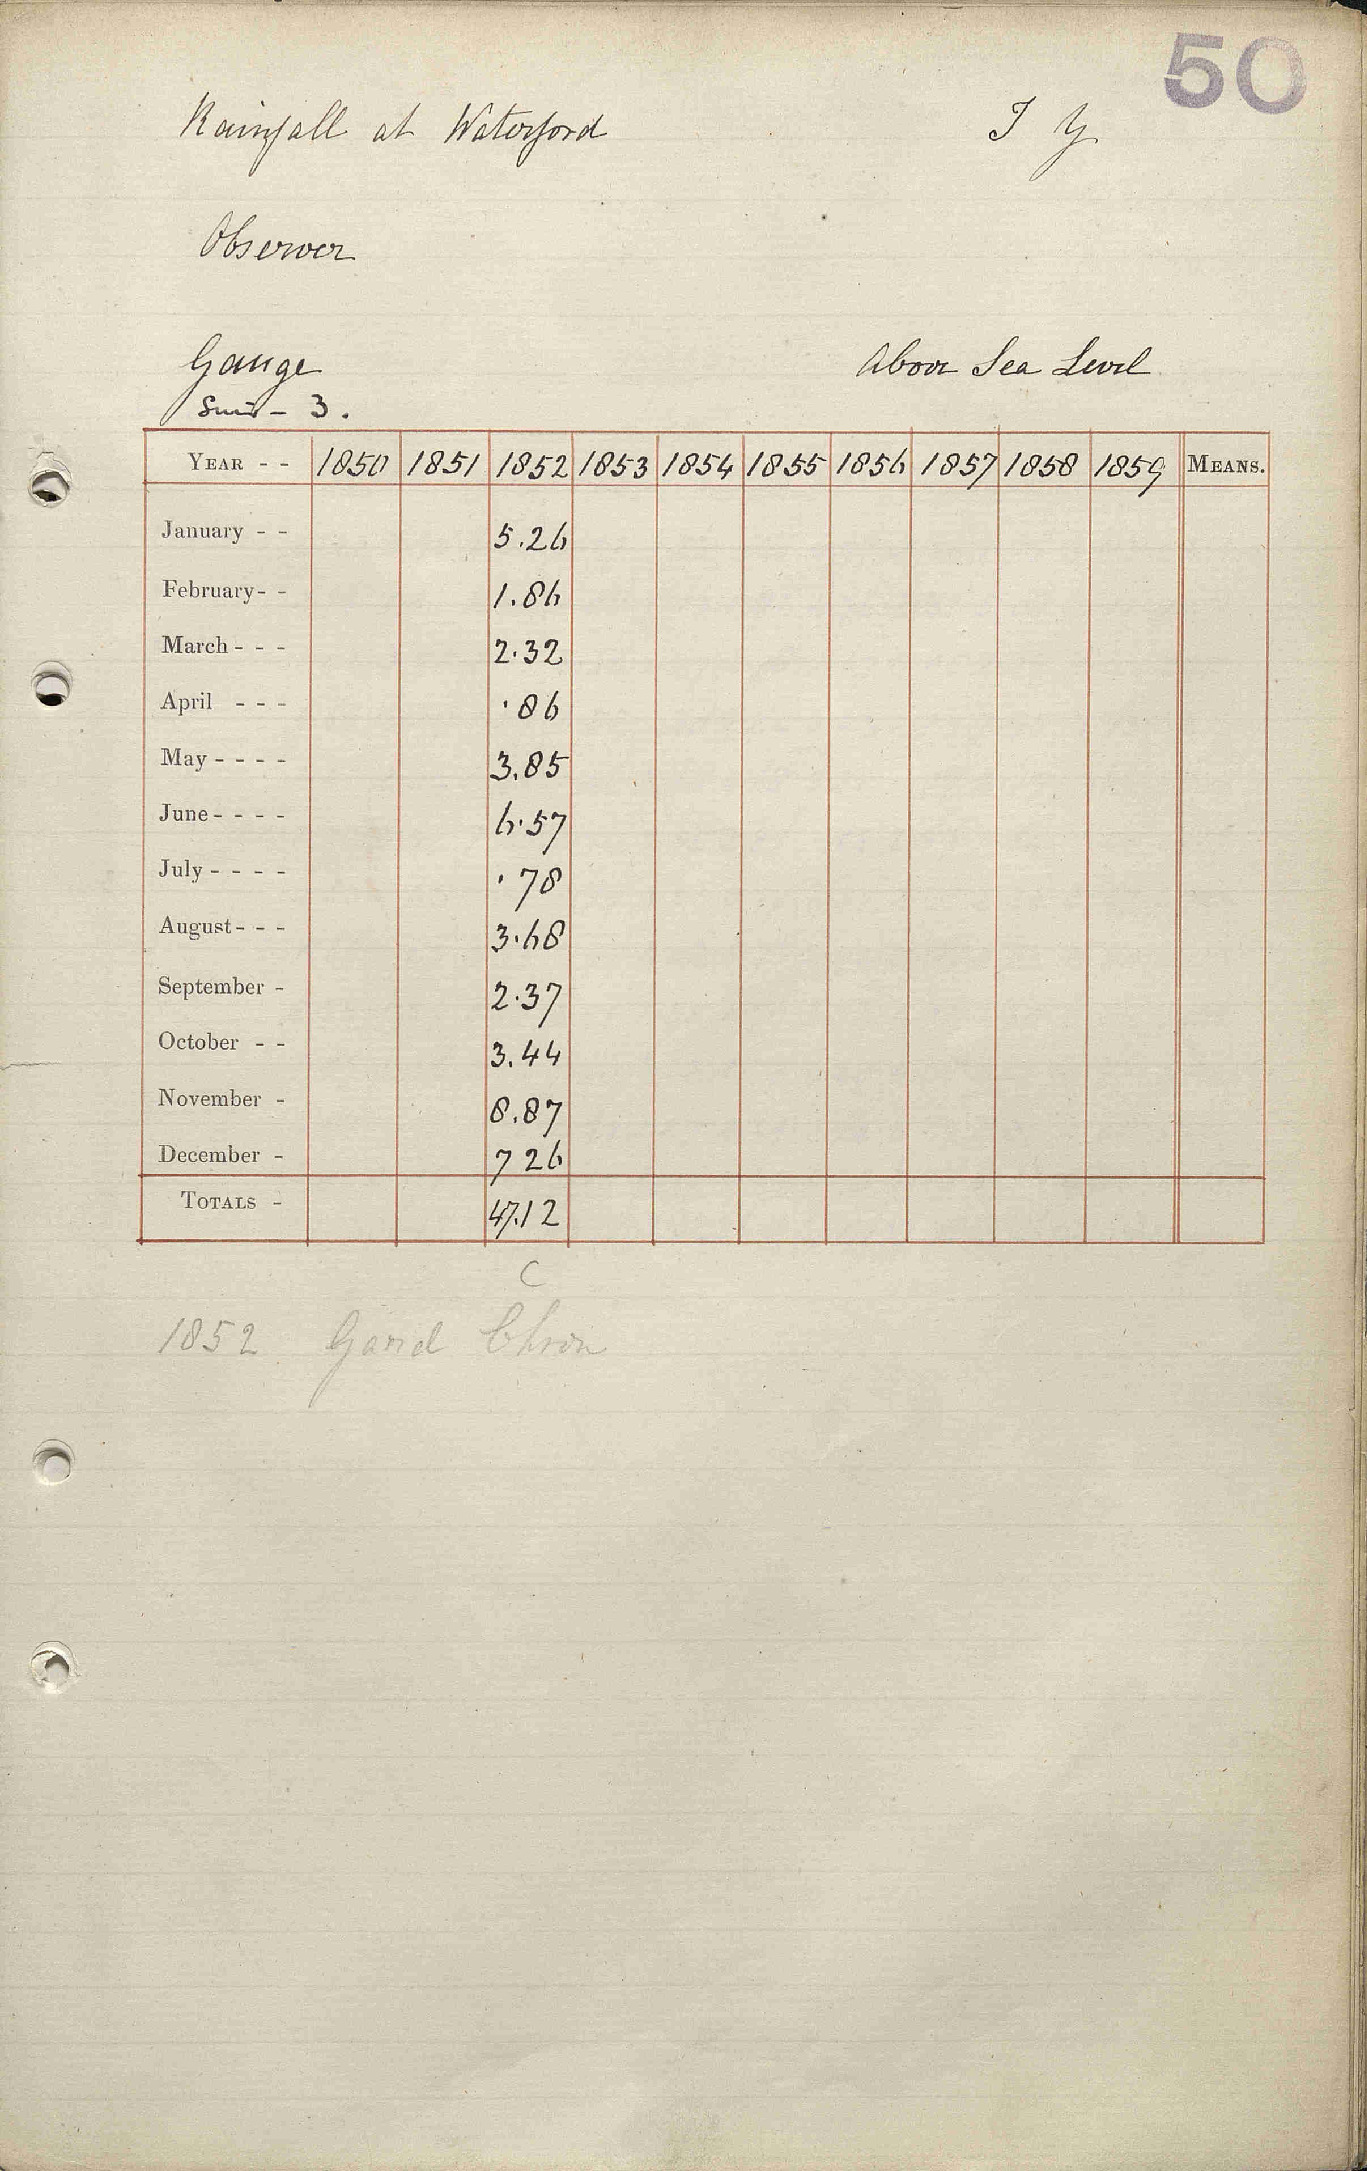 50
Rainfall at Waterford I Y
Observer
Gauge Above Sea Level
Suir - 3.
YEAR - - 1850 1851 1852 1853 1854 1855 1856 1857 1858 1859 MEANS.
January - - 5.26
February - - 1.86
March - - - 2.32
April - - - .86
May - - - - 3.85
June - - - - 6.57
July - - - - .78
August - - - 3.68
September - 2.37
October - - 3.44
November - 8.87
December - 7 26
TOTALS - 47.12
C
1852 Gard Chron